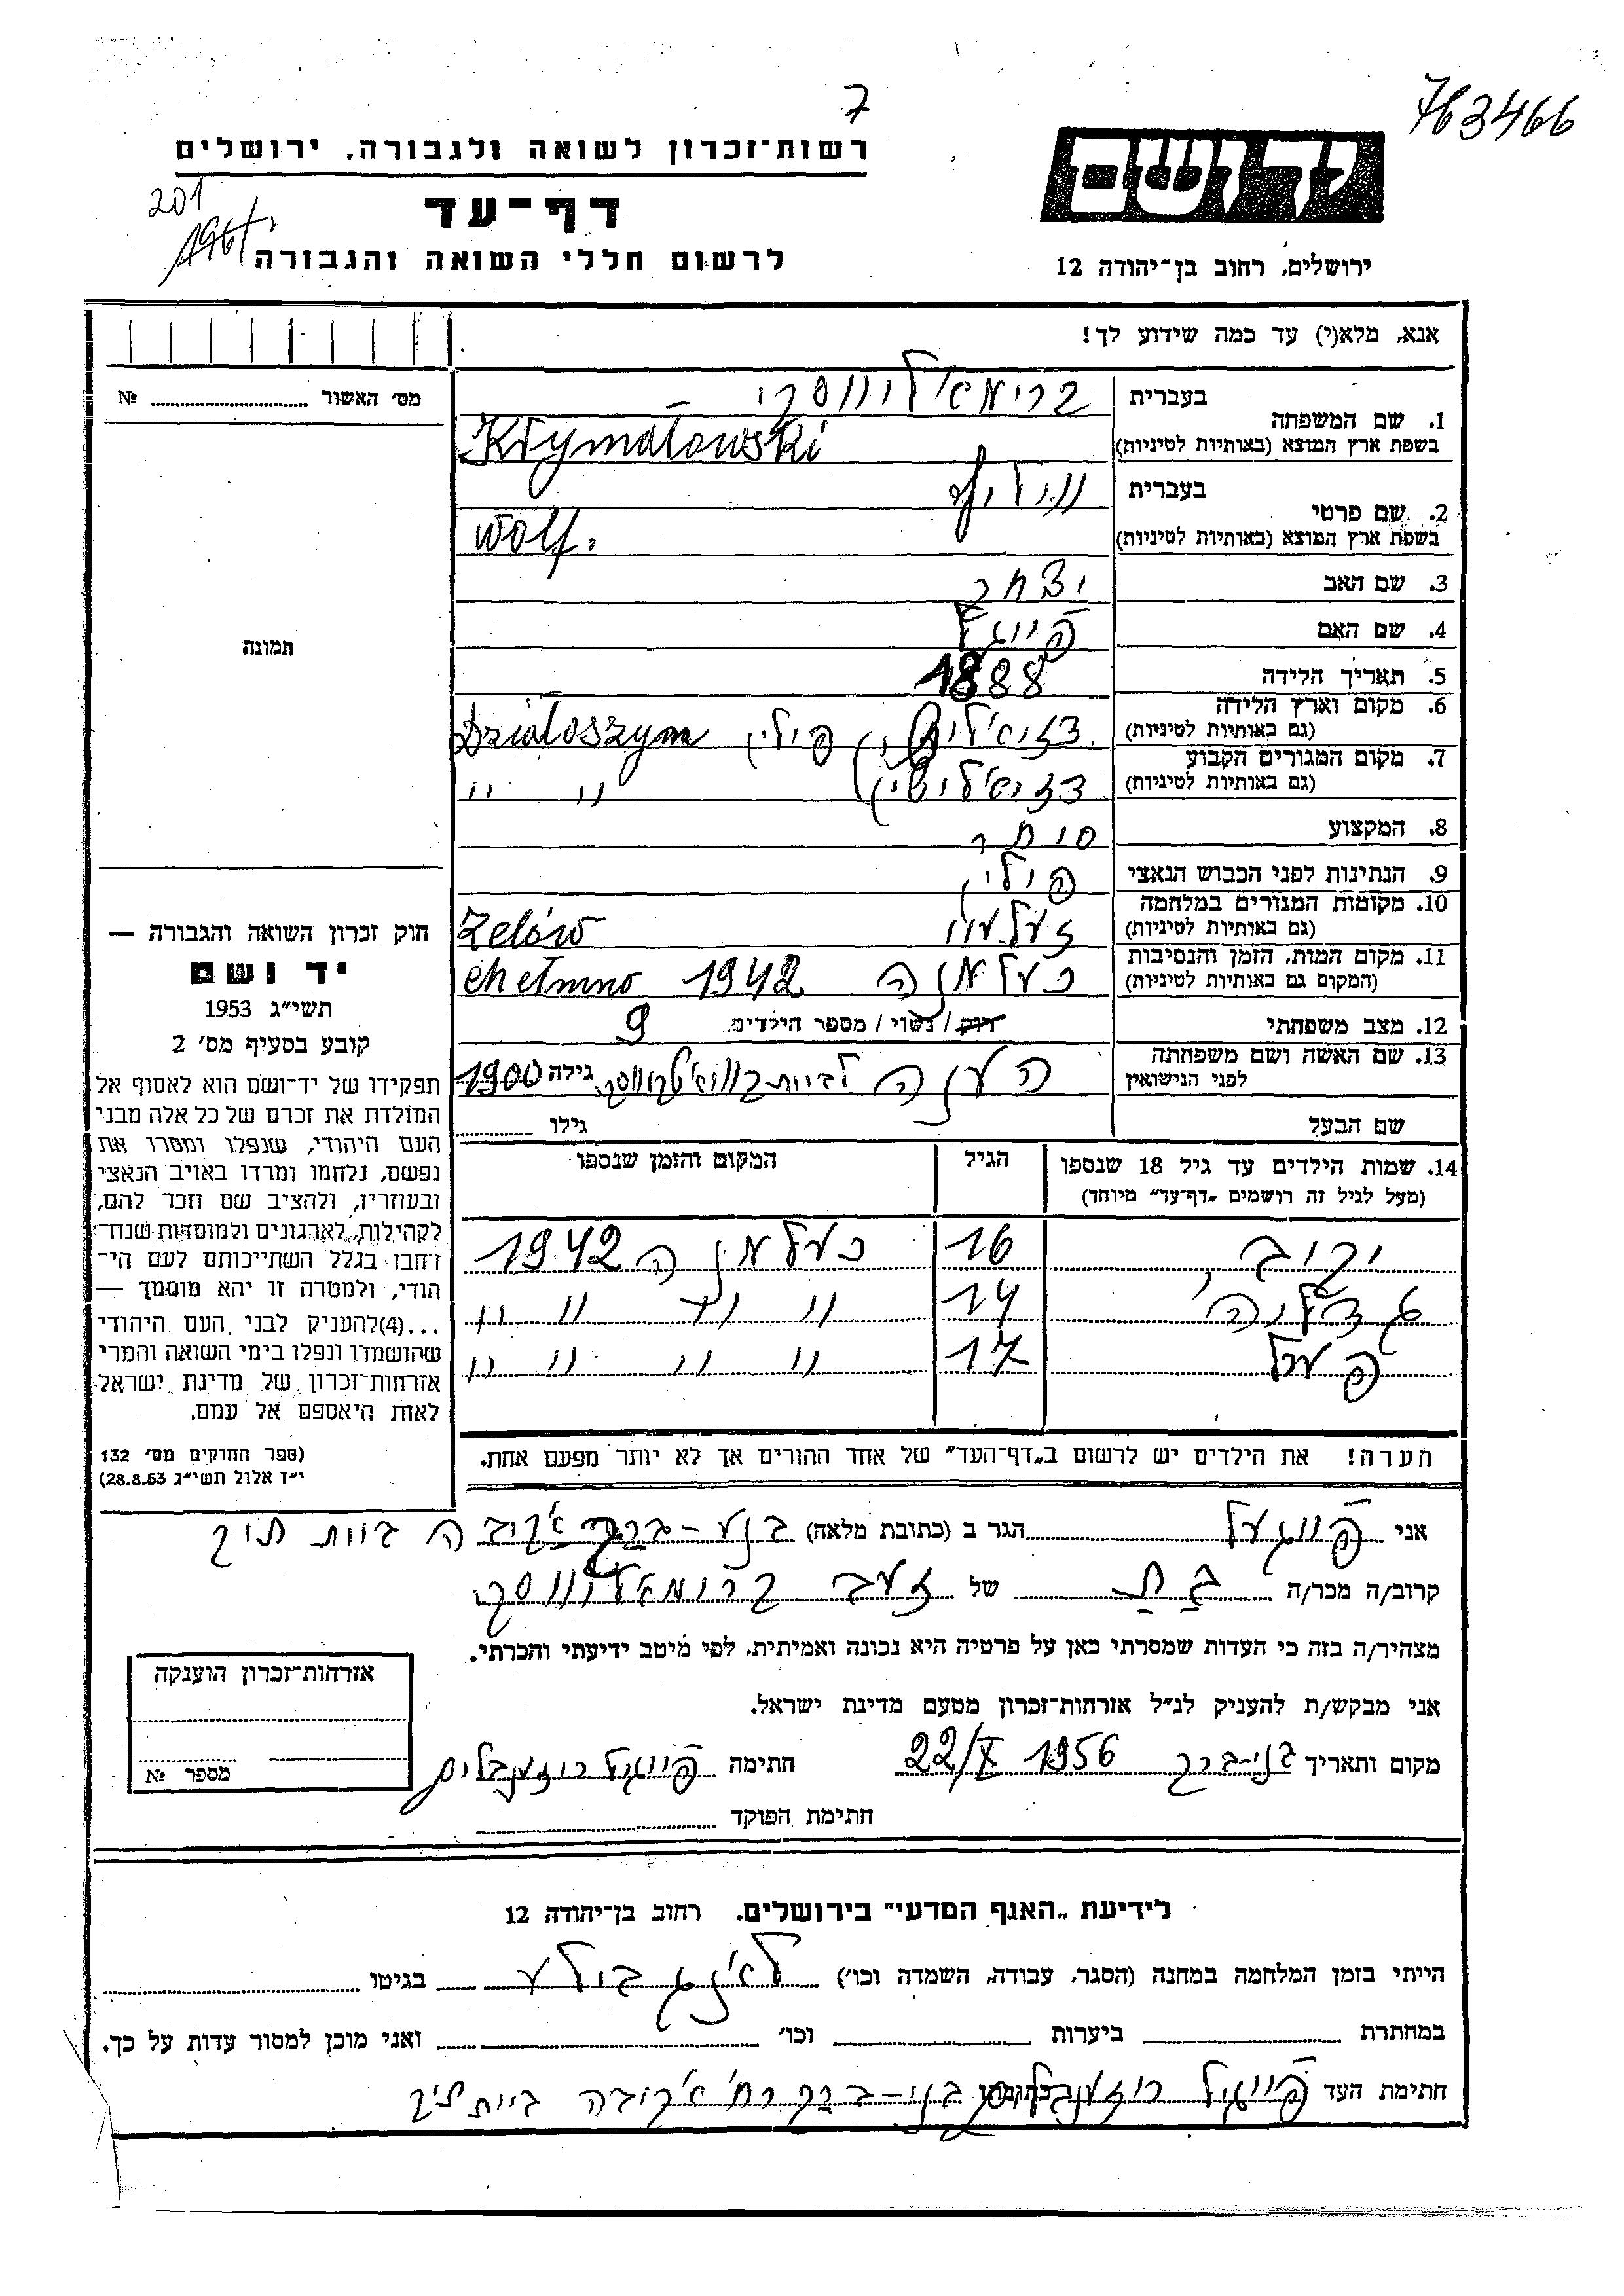 763466
7
רשות־זכרון לשואה ולגבורה, ירושלים
ידושם
201
דף־עד
לרשום חללי השואה והגבורה
ירושלים, רחוב בן־יהודה 12
אנא, מלא(י) עד כמה שידוע לך!
מס׳ האשור ........ №
בעברית
1. שם המשפחה
בשפת ארץ המוצא (באותיות לטיניות) Krymałowski
בעברית וואלף
2. שם פרטי
בשפת ארץ המוצא (באותיות לטיניות) Wolf.
3. שם האב יצחק
תמונה
4. שם האם פייגל
5. תאריך הלידה 1888
6. מקום וארץ הלידה פולין Działoszym
(גם באותיות לטיניות)
7. מקום המגורים הקבוע דזיאלושין " "
(גם באותיות לטיניות)
8. המקצוע סוחר
9. הנתינות לפני הכבוש הנאצי פולין
10. מקומות המגורים במלחמה זעלעוו Zelów
(גם באותיות לטיניות)
11. מקום המות, הזמן והנסיבות כעלמנה 1942 Chełmno
(המקום גם באותיות לטיניות)
12. מצב משפחתי רוק / נשוי / מספר הילדים 9
13. שם האשה ושם משפחתה הענה לבית גילה 1900
לפני הנישואין
שם הבעל גילו ........
חוק זכרון השואה והגבורה —
יד ושם
תשי״ג 1953
קובע בסעיף מס׳ 2
תפקידו של יד־ושם הוא לאסוף אל
המולדת את זכרם של כל אלה מבני
העם היהודי, שנפלו ומסרו את
נפשם, נלחמו ומרדו באויב הנאצי
ובעוזריו, ולהציב שם וזכר להם,
לקהילות, לארגונים ולמוסדות שנח־
רבו בגלל השתייכותם לעם הי־
הודי, ולמטרה זו יהא מוסמך —
...(4) להעניק לבני העם היהודי
שהושמדו ונפלו בימי השואה והמרי
אזרחות־זכרון של מדינת ישראל
לאות היאספם אל עמם.
(ספר החוקים מס׳ 132
י״ז אלול תשי״ג 28.8.53)
14. שמות הילדים עד גיל 18 שנספו הגיל המקום והזמן שנספו
(מעל לגיל זה רושמים „דף־עד״ מיוחד)
16 כעלמנה 1942
גדליהו 14 " " " "
פערל 17 " " " "
הערה! את הילדים יש לרשום ב„דף־העד״ של אחד ההורים אך לא יותר מפעם אחת.
אני פייגעל הגר ב (כתובת מלאה) בנע-ברק
קרוב/ה מכר/ה בת של זעב
מצהיר/ה בזה כי העדות שמסרתי כאן על פרטיה היא נכונה ואמיתית, לפי מיטב ידיעתי והכרתי.
אני מבקש/ת להעניק לנ״ל אזרחות־זכרון מטעם מדינת ישראל.
מקום ותאריך בני-ברק 22/X 1956 חתימה פייגיל רוזענבלום
חתימת הפוקד ........
אזרחות־זכרון הוענקה
מספר №
לידיעת „האגף המדעי״ בירושלים, רחוב בן־יהודה 12
הייתי בזמן המלחמה במחנה (הסגר, עבודה, השמדה וכו׳) בגיטו ........
במחתרת ........ ביערות ........ וכו׳ ........ ואני מוכן למסור עדות על כך.
חתימת העד פייגיל רוזענבלום כתובתו בני-ברק